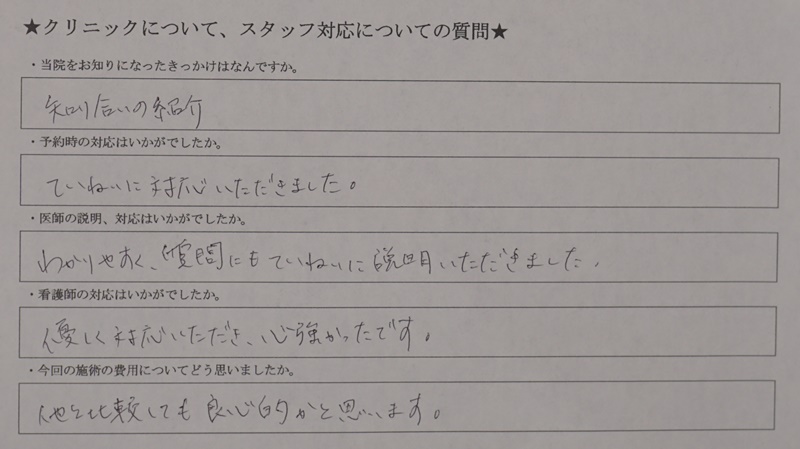 ★クリニックについて、スタッフ対応についての質問★
・当院をお知りになったきっかけはなんですか。
知り合いの紹介
・予約時の対応はいかがでしたか。
ていねいに対応いただきました。
・医師の説明、対応はいかがでしたか。
わかりやすく、質問にもていねいに説明いただきました。
・看護師の対応はいかがでしたか。
優しく対応いただき、心強かったです。
・今回の施術の費用についてどう思いましたか。
他と比較しても良心的かと思います。